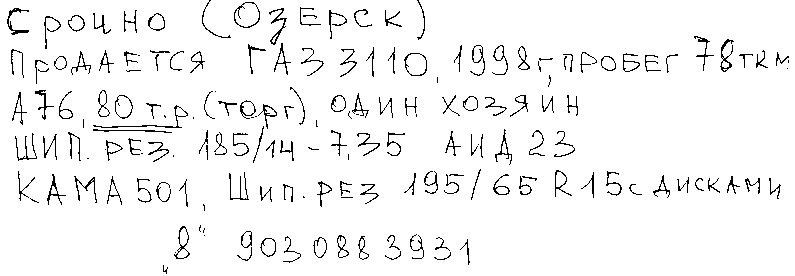 Срочно (Озерск)
Продается ГАЗ 3110, 1998г, пробег 78 ткм
А76, 80 т.р. (торг), один хозяин
Шип. рез. 185/14 - 7,35 АИД 23
КАМА 501, Шип. рез 195/65 R15 с дисками
"8" 9030883931